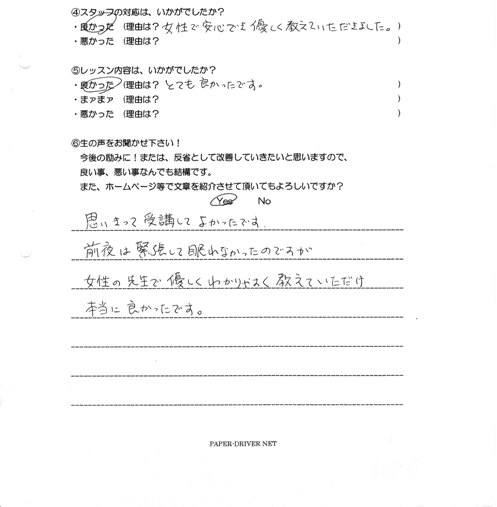 ④スタッフの対応は、いかがでしたか？
・良かった (理由は？ 女性で安心でき優しく教えていただきました。)
・悪かった (理由は？ )
⑤レッスン内容は、いかがでしたか？
・良かった (理由は？ とても良かったです。 )
・まァまァ (理由は？ )
・悪かった (理由は？ )
⑥生の声をお聞かせ下さい！
今後の励みに！または、反省として改善していきたいと思いますので、
良い事、悪い事なんでも結構です。
また、ホームページ等で文章を紹介させて頂いてもよろしいですか？
Yes No
思いきって受講してよかったです
前夜は緊張して眠れなかったのですが
女性の先生で優しくわかりやすく教えていただけ
本当に良かったです。
PAPER-DRIVER NET